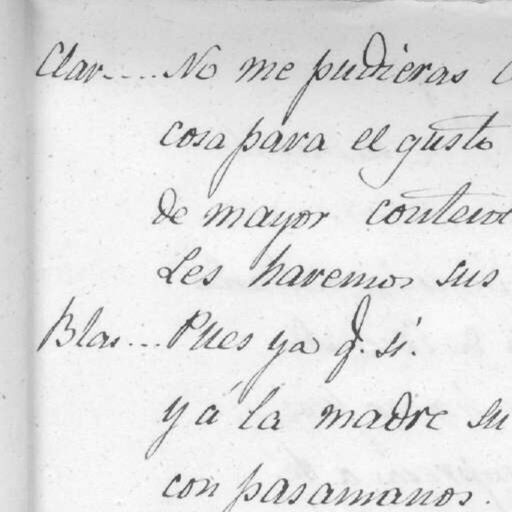 Clar.... No me pudieras
cosa para el gusto
de mayor
Les haremos sus
Blas... Pues ya q. si.
y á la madre su
con pasamanos.